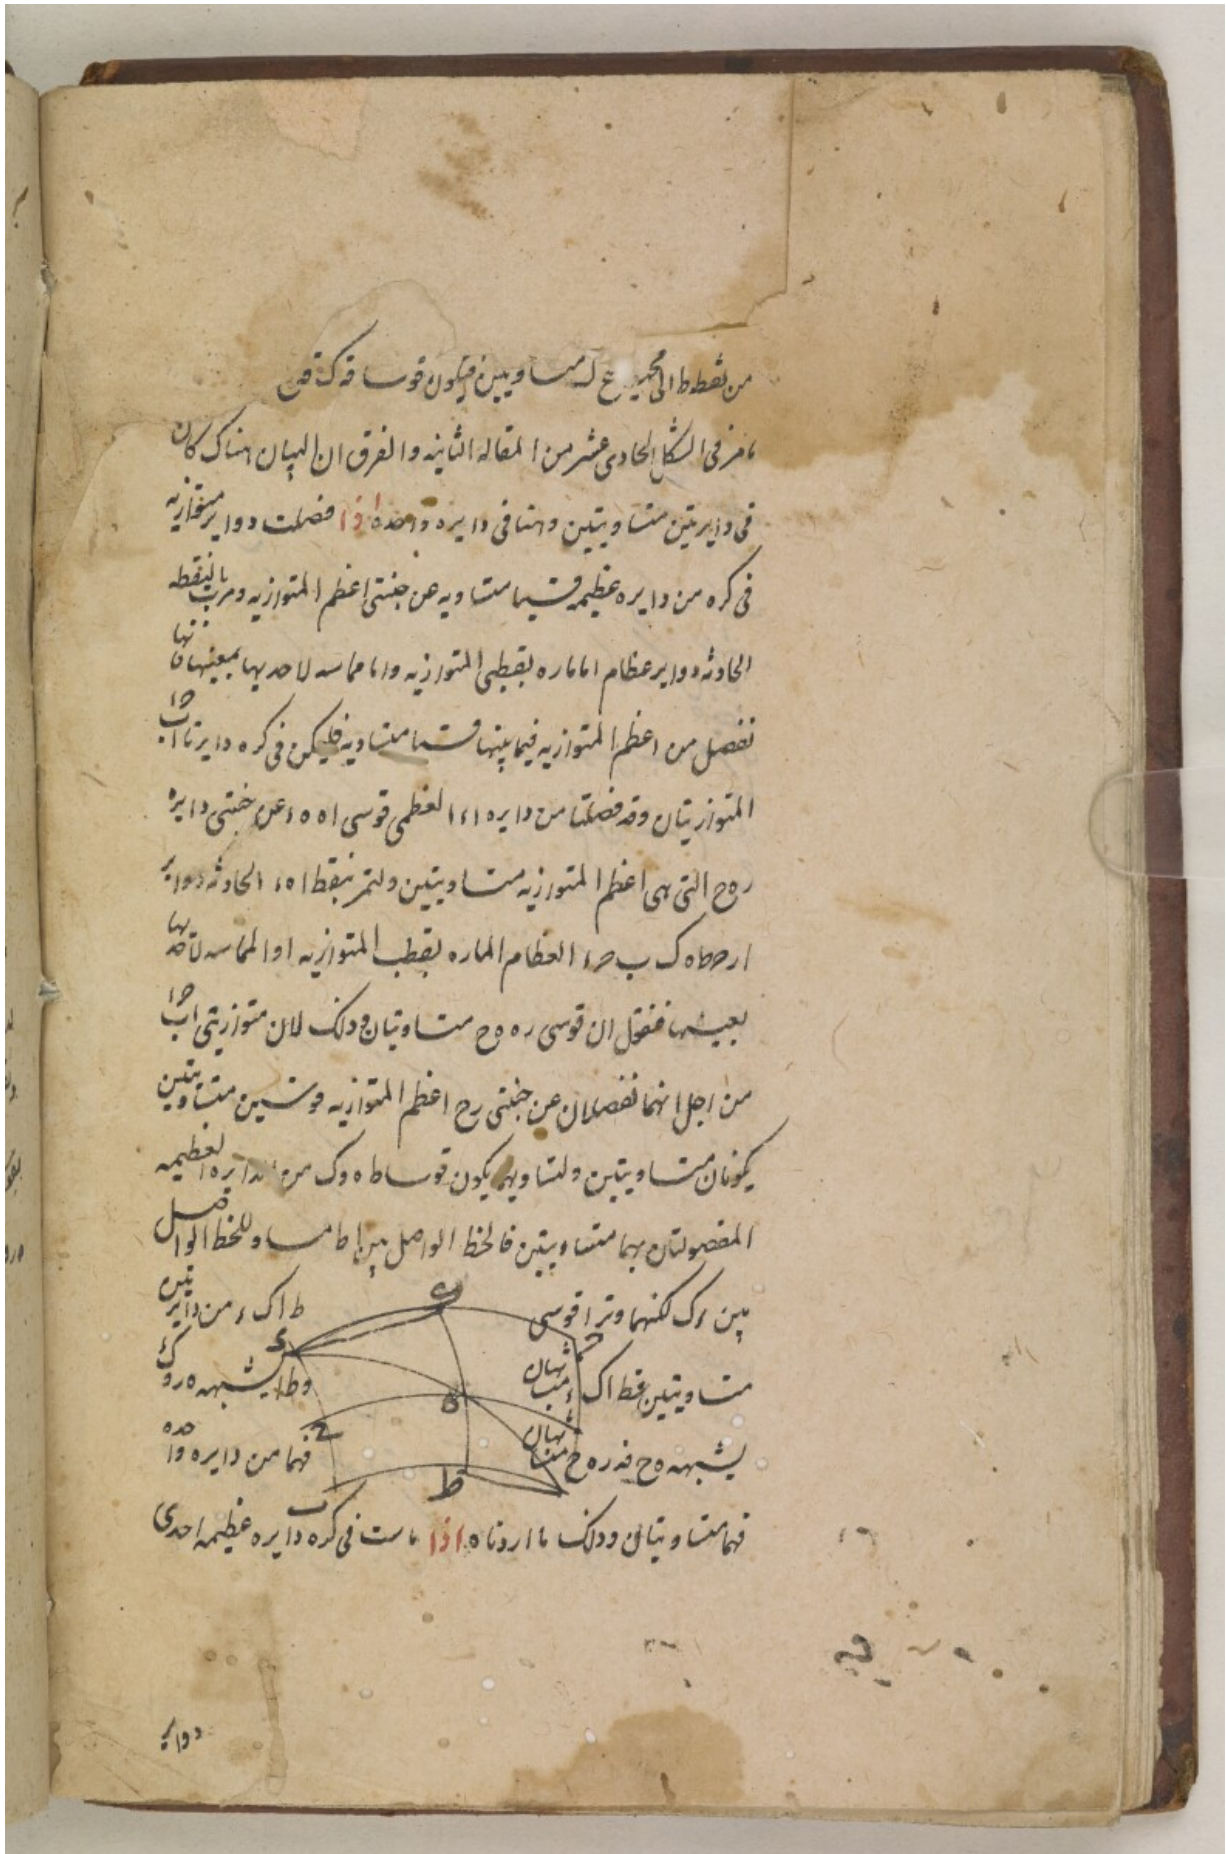 من نقطة ط الى محيط ع ك متساويين فيكون قوسا
ما مر فى الشكل الحادى عشر من المقاله الثانيه والفرق ان البيان هناك كان
فى دايرتين متساويتين وهنا فى دايره واحده اذا فصلت دواير متوازيه
فى كره من دايره عظيمه قسيا متساويه عن جنبتى اعظم المتوازيه ومرت بالنقطه
الحادثه دواير عظام اما ماره بقطبى المتوازيه واما مماسه لاحديها بعينها فانها
تفصل من اعظم المتوازيه فيما بينها قسيا متساويه فليكن فى كره دايرتا اب
المتوازيتان وقد فصلتا من دايره العظمى قوسى عن جنبتى دايره
ر ه ح التى هى اعظم المتوازيه متساويتين ولتمر بنقط الحادثه دواير
العظام الماره بقطب المتوازيه او المماسه لاحديها
بعينها فنقول ان قوسى ر ه ه ح متساويتان وذلك لان متوازيتى اب
من اجل انهما تفصلان عن جنبتى رح اعظم المتوازيه قوسين متساويتين
يكونان متساويتين ولتساويهما يكون قوسا ط ه ه ك من الدايره العظيمه
المفصولتان بهما متساويتين فالخط الواصل بين ا ط مساو للخط الواصل
بين ء ك لكنهما وترا قوسى ط ا ك ء من دايرتين
متساويتين فط ا ك ء متشابهتان وط ا يشبهه ه ر و ك ء
يشبهه ه ح فه ر ه ح متشابهتان فهما من دايره واحده
فهما متساويتان وذلك ما اردناه اذا ماست فى كره دايره عظيمه احدى
دواير